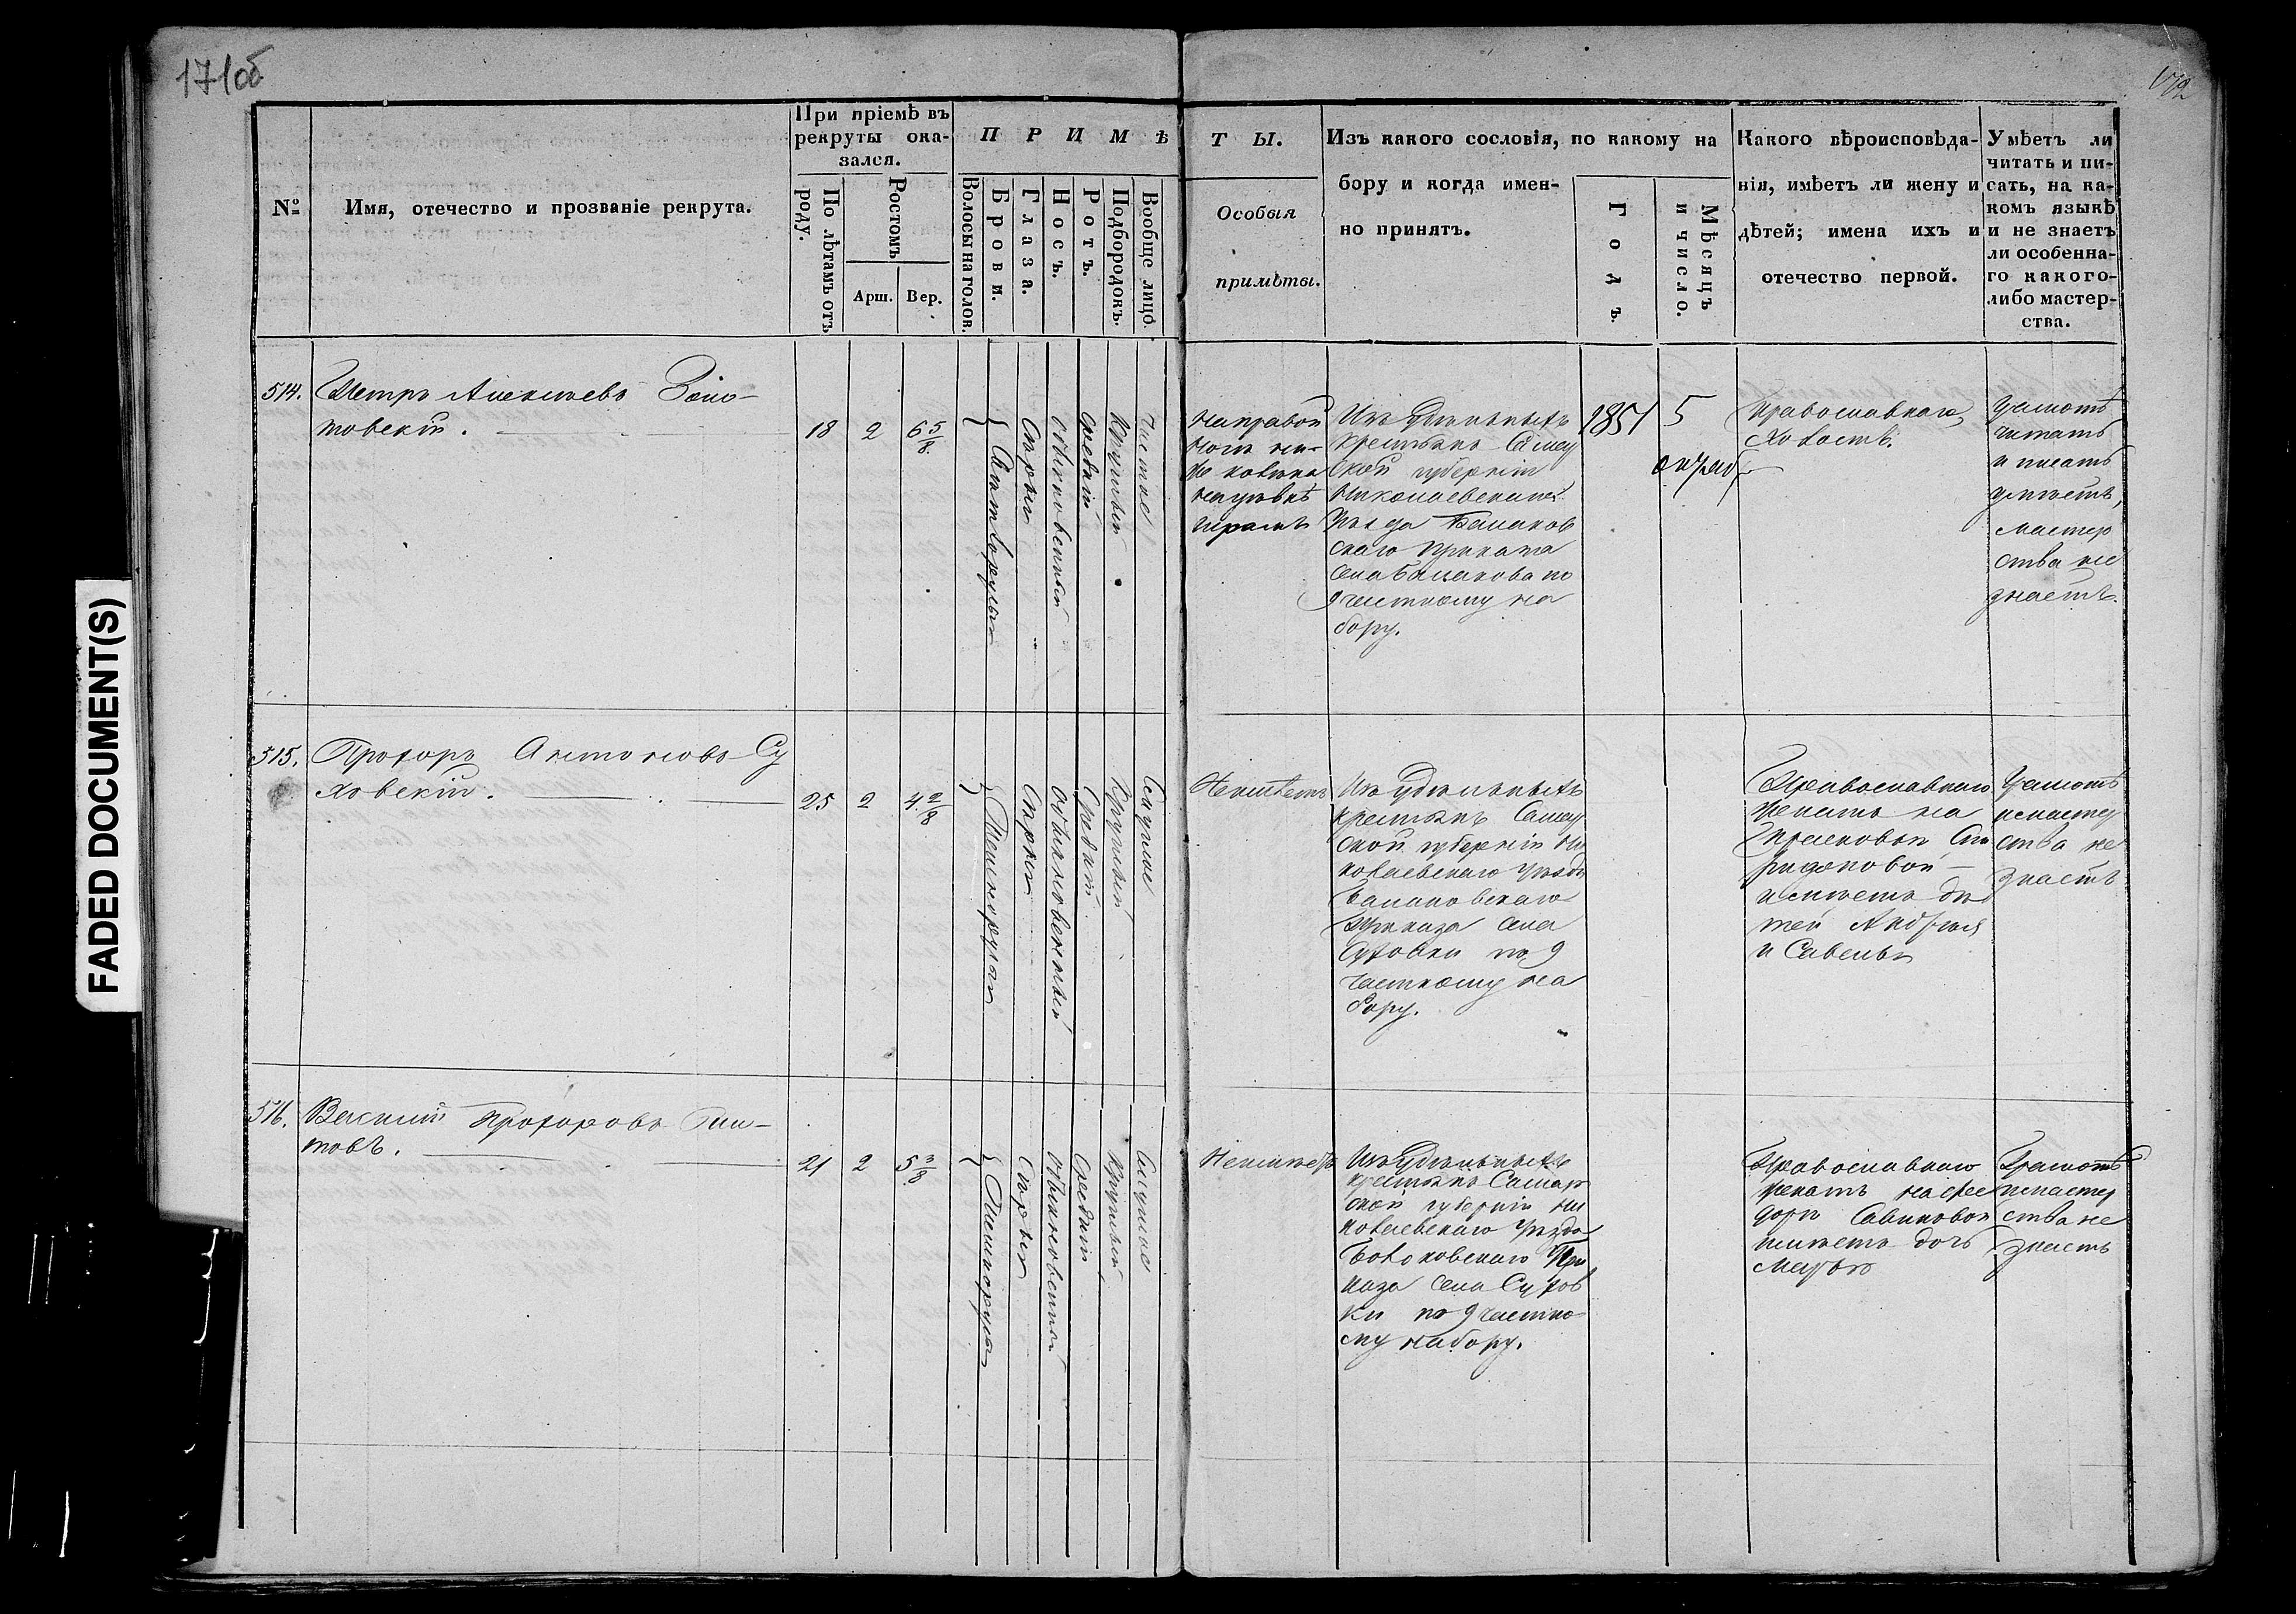 171об
172
FADED DOCUMENT(S)
№
Имя, отечество и прозваніе рекрута.
При пріемѣ въ
рекруты ока-
зался.
По лѣтамъ отъ
роду.
Ростомъ
Арш.
Вер.
ПРИМѢ
Волосы на голов.
Брови.
Глаза.
Носъ.
Ротъ.
Подбородокъ.
Вообще лицо.
ТЫ.
Особыя
примѣты.
Изъ какого сословія, по какому на
бору и когда имен-
но принятъ.
Годъ.
Мѣсяцъ
и число.
Какого вѣроисповѣда-
нія, имѣетъ ли жену и
дѣтей; имена ихъ и
отечество первой.
Умѣетъ ли
читать и пи-
сать, на ка-
комъ языкѣ
и не знаетъ
ли особенна-
го какого-
либо мастер-
ства.
514.
Петръ Алексѣевъ
товскій.
18
2
6 5/8
Светлорусыя
Сѣрыя
обыкновенный
средній
круглый
чистое
На правой
ноги ни-
же колѣна
шрамъ
Изъ Удѣльныхъ
крестьянъ Самар
ской губерніи
Николаевскаго
Уѣзда Балаков
скаго Приказа
села Балакова по
9 частному на
бору.
1851
5
октяб
Православнаго,
Холостъ.
Грамотѣ
читать
и писать
умѣетъ,
мастер
ства не
знаетъ.
515.
Прохоръ Антоновъ Су
ховскій.
25
2
4 2/8
Темнорусыя
Сѣрыя
обыкновенный
Средній
Круглый
Смуглое
Неимѣетъ
Изъ Удѣльныхъ
крестьянъ Самар
ской губерніи Ни
колаевскаго Уѣзда
Балаковскаго
Приказа села
Суховки по 9
частному на
бору.
Православнаго
женатъ на
Спи
ридоновой
и имѣетъ дѣ
тей Андрея
и Савелья
Грамотѣ
и мастер
ства не
знаетъ
516.
Василій Прохоровъ
товъ.
21
2
5 3/8
Темнорусыя
Сѣрыя
обыкновенный
средній
круглый
Смуглое
Неимѣетъ
Изъ Удѣльныхъ
крестьянъ Самар
ской губерніи Ни
колаевскаго Уѣзда
Болоковскаго При
каза села Сухов
ки по 9 частно
му набору.
Православнаго
женатъ на Фео
доры Савиновой
имѣетъ дочь
Марью
Грамотѣ
и мастер
ства не
знаетъ